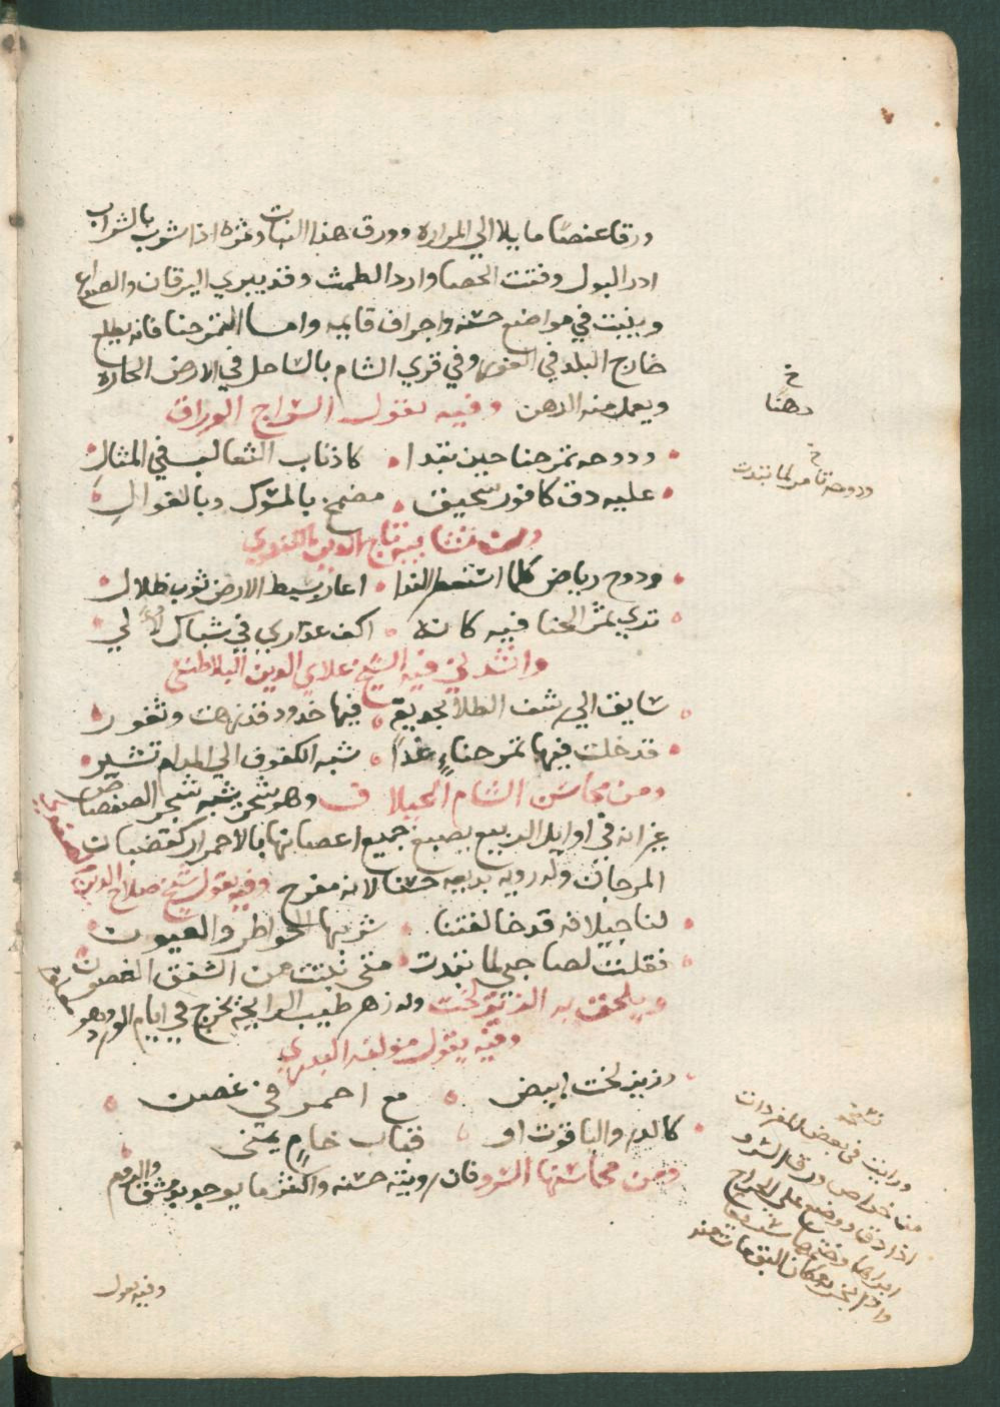 ورقا عفصا مايلا الي المراره وورق هذا النبات وثمره اذا شرب بالشراب
ادر البول وفتت الحصا وادر الطمث وقد يبري اليرقان والصداع
وينبت في مواضع خشنه واجراف قايمه واما التمرحنا فانه يطلع
خارج البلد في الغوطه وفي قري الشام بالساحل في الارض الحاره
ويعمل منه الدهن وفيه يقول السراج الوراق
ودوحه تمرحنا حين تبدا كاذناب الثعالب في المثال
عليه دق كافور سحيق مضمخ بالمسك وبالغوال
تاج الدين الكندي
ودوح رياض كلما الندا اعار بسيط الارض ثوب ظلال
تدي بثمر الحنا فيه كانه اكف عذاري في شباك لالي
وانشدني فيه الشيخ علاي الدين البلاطنسي
سابق الي رشف الطلا بحديقة فيها خدود قد زهت وثغور
قد خلت فيها تمر حناء غدا شبه الكفوف الي المدام تشير
ومن محاسن الشام الجيلاق وهو شجر يشبه شجر الصفصاف
غير انه في اوايل الربيع يصبغ جميع اغصانها بالاحمرار كقضبان
المرجان وله رويه بديعه حسنا لانه مفرح وفيه يقول شيخ صلاح الدين
لنا جيلاقه قد خالفتنا شربها الخواطر والعيون
فقلت لصاحبي لما تبدت متي نبتت من الشفق الغصون
ويلحق به الزيزلخت وله زهر طيب الرايحة يخرج في ايام الورد وهو
وفيه يقول مولفه البدري
وزيزلخت ابيض مع احمر في غصن
كالدر والياقوت او قناب خام يمني
ومن محاسنها السرو فان رويته حسنه واكثر ما يوجد بدمشق والروم
خ
دهنا
خ
ودوحه تامر لما تبدت
نسخه
ورايت في بعض المفردات
من خواص ورق السرو
اذا دق ووضع علي الجراح
ابراها وختمها
وفيه يقول